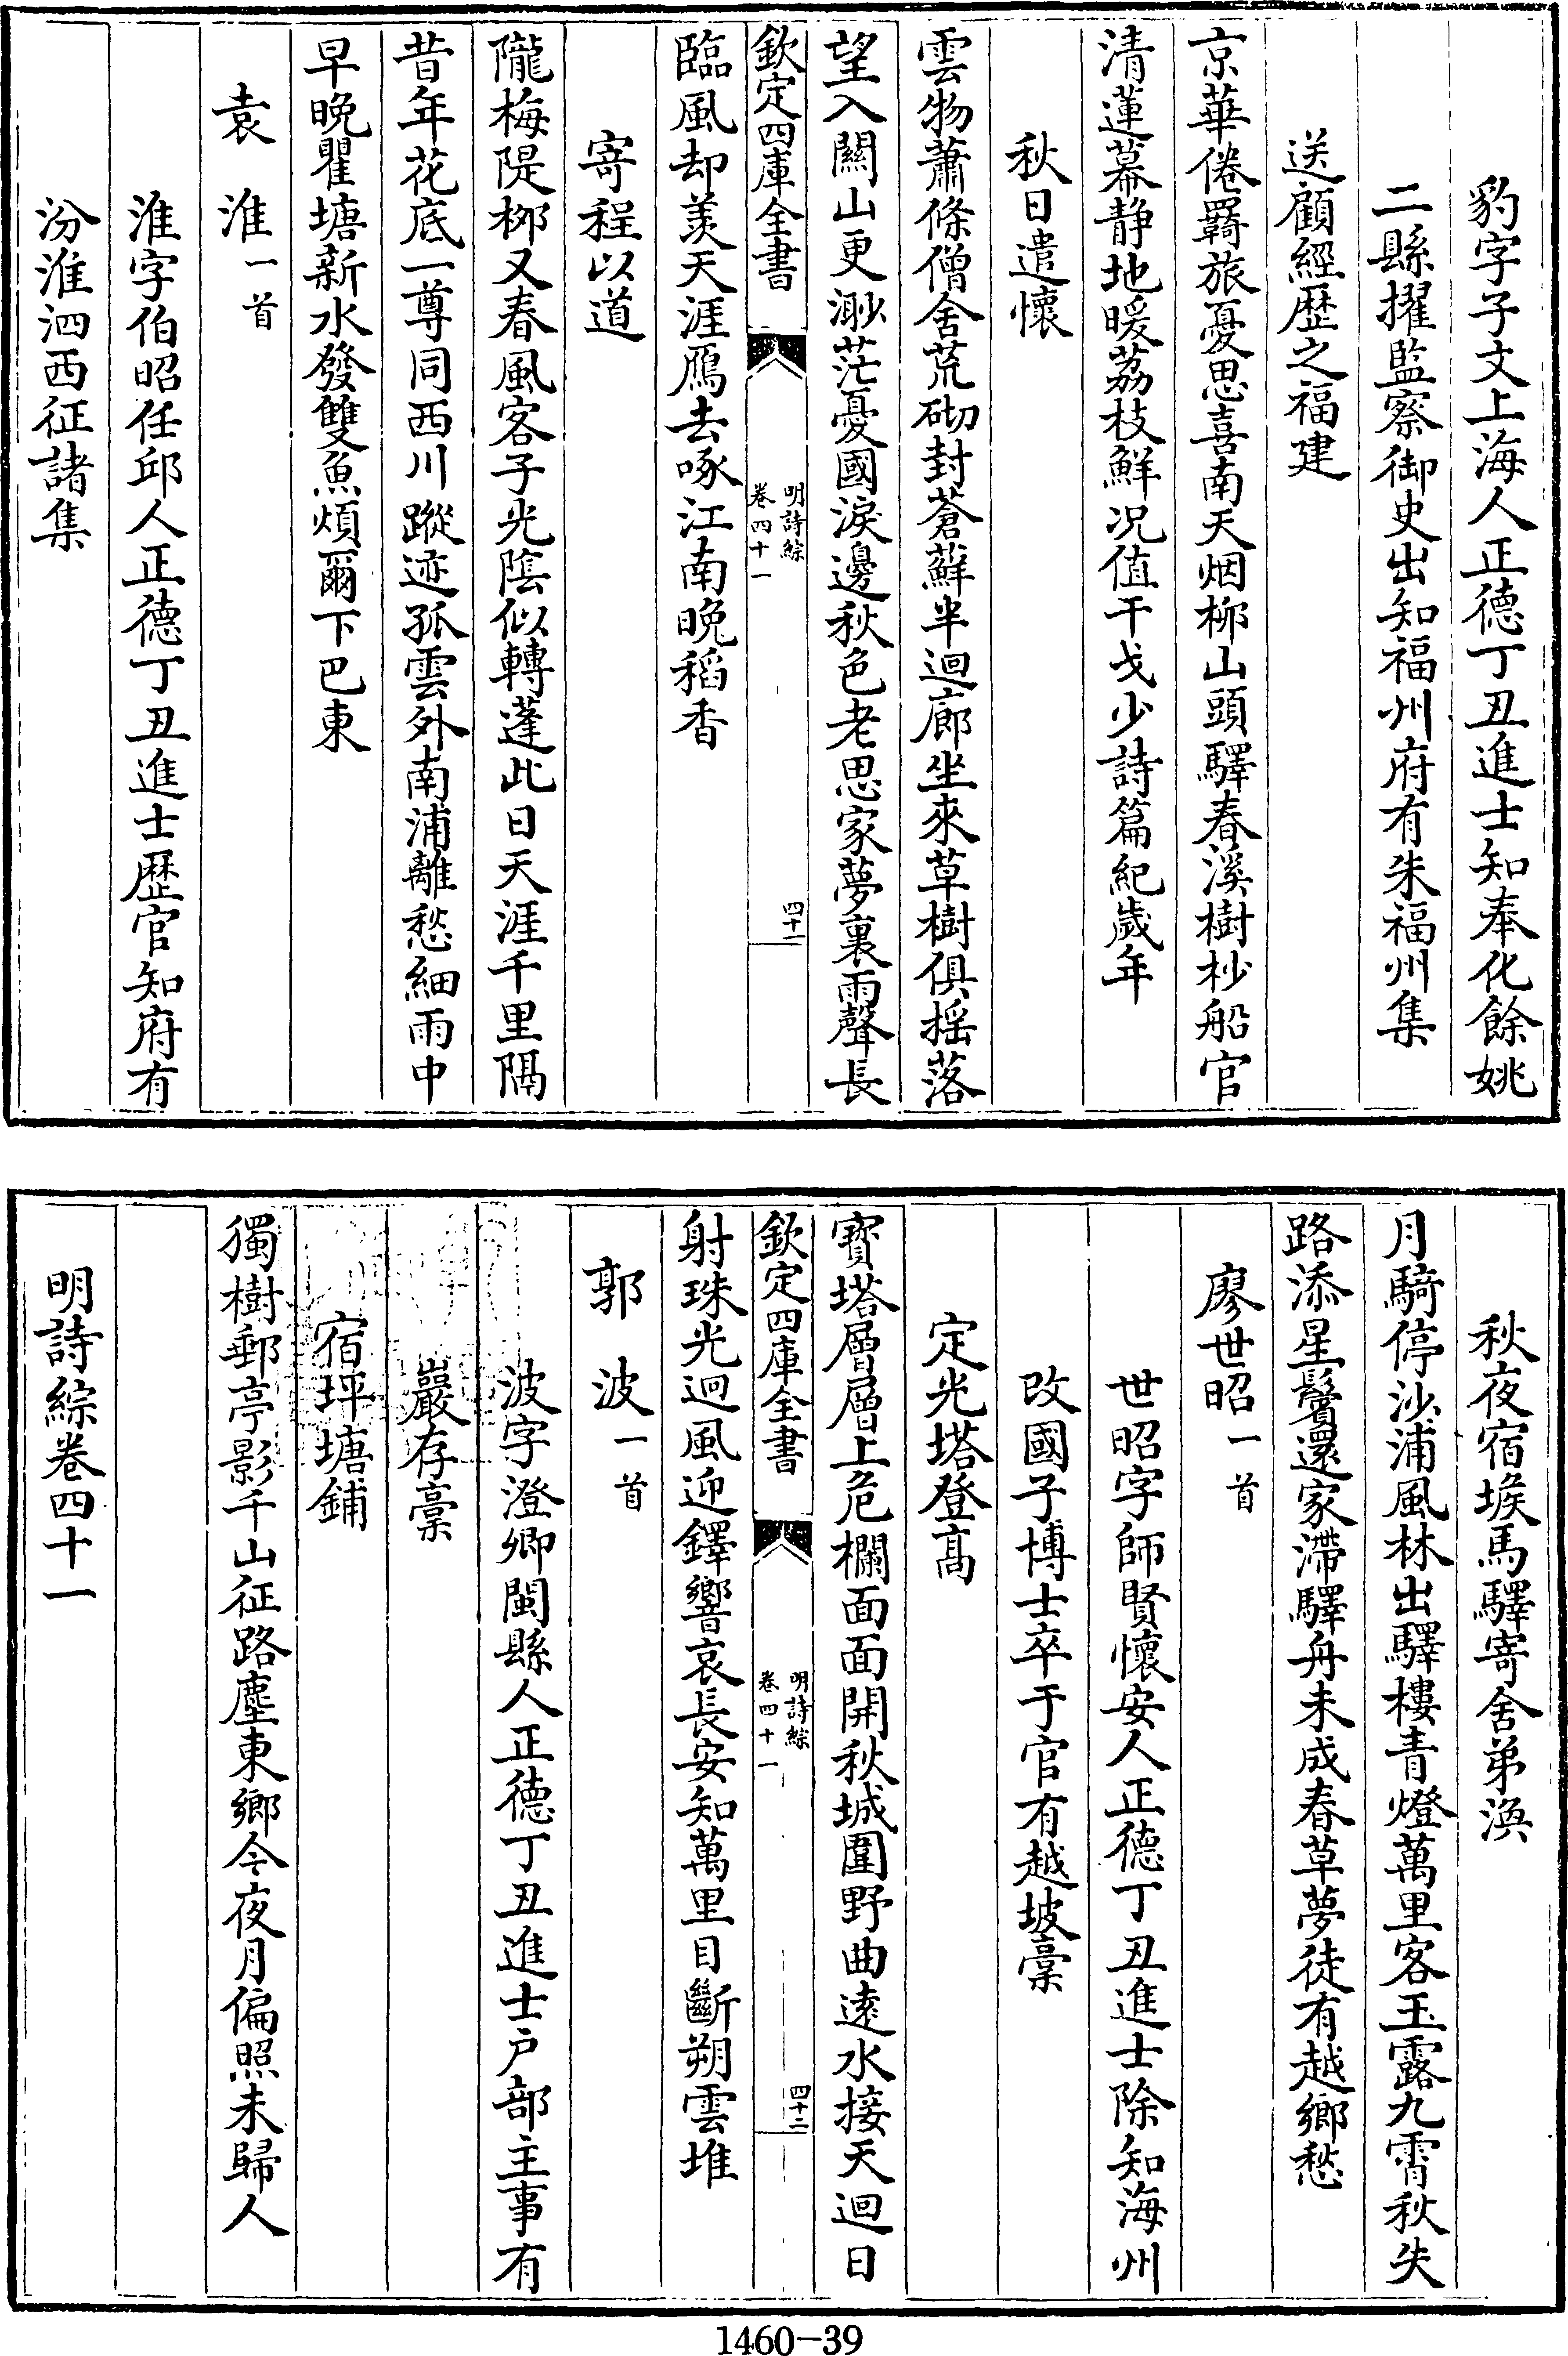 豹字子文上海人正德丁丑進士知奉化餘姚
二縣擢監察御史出知福州府有朱福州集
送顧經歴之福建
京華倦羇旅憂思喜南天烟栁山頭驛春溪樹杪船官
清蓮幕靜地暖荔枝鮮况值干戈少詩篇紀歳年
秋日遣懷
雲物蕭條僧舍荒砌封蒼蘚半迴廊坐來草樹俱揺落
望入關山更渺茫憂國淚邊秋色老思家夢裏雨聲長
欽定四庫全書
明詩綜
卷四十一
四十一
臨風却羨天涯鴈去啄江南晚稻香
寄程以道
隴梅隄栁又春風客子光隂似轉蓬此日天涯千里隔
昔年花底一尊同西川蹤迹孤雲外南浦離愁細雨中
早晚瞿塘新水發雙魚煩爾下巴東
袁淮一首
淮字伯昭任邱人正德丁丑進士歴官知府有
汾淮泗西征諸集
秋夜宿堠馬驛寄舍弟渙
月騎停沙浦風林出驛樓青燈萬里客玉露九霄秋失
路添星鬢還家滯驛舟未成春草夢徒有越鄉愁
廖世昭一首
世昭字師賢懷安人正德丁丑進士除知海州
改國子博士卒于官有越坡藁
定光塔登高
寳塔層層上危欄面面開秋城圍野曲逺水接天迴日
欽定四庫全書
明詩綜
卷四十一
四十二
射珠光迴風迎鐸響哀長安知萬里目斷朔雲堆
郭波一首
波字澄卿閩縣人正德丁丑進士户部主事有
巖存藁
宿坪塘鋪
獨樹郵亭影千山征路塵東鄉今夜月偏照未歸人
明詩綜卷四十一
1460-39